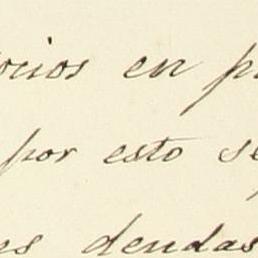 ocios en p
por esto se
es dendas